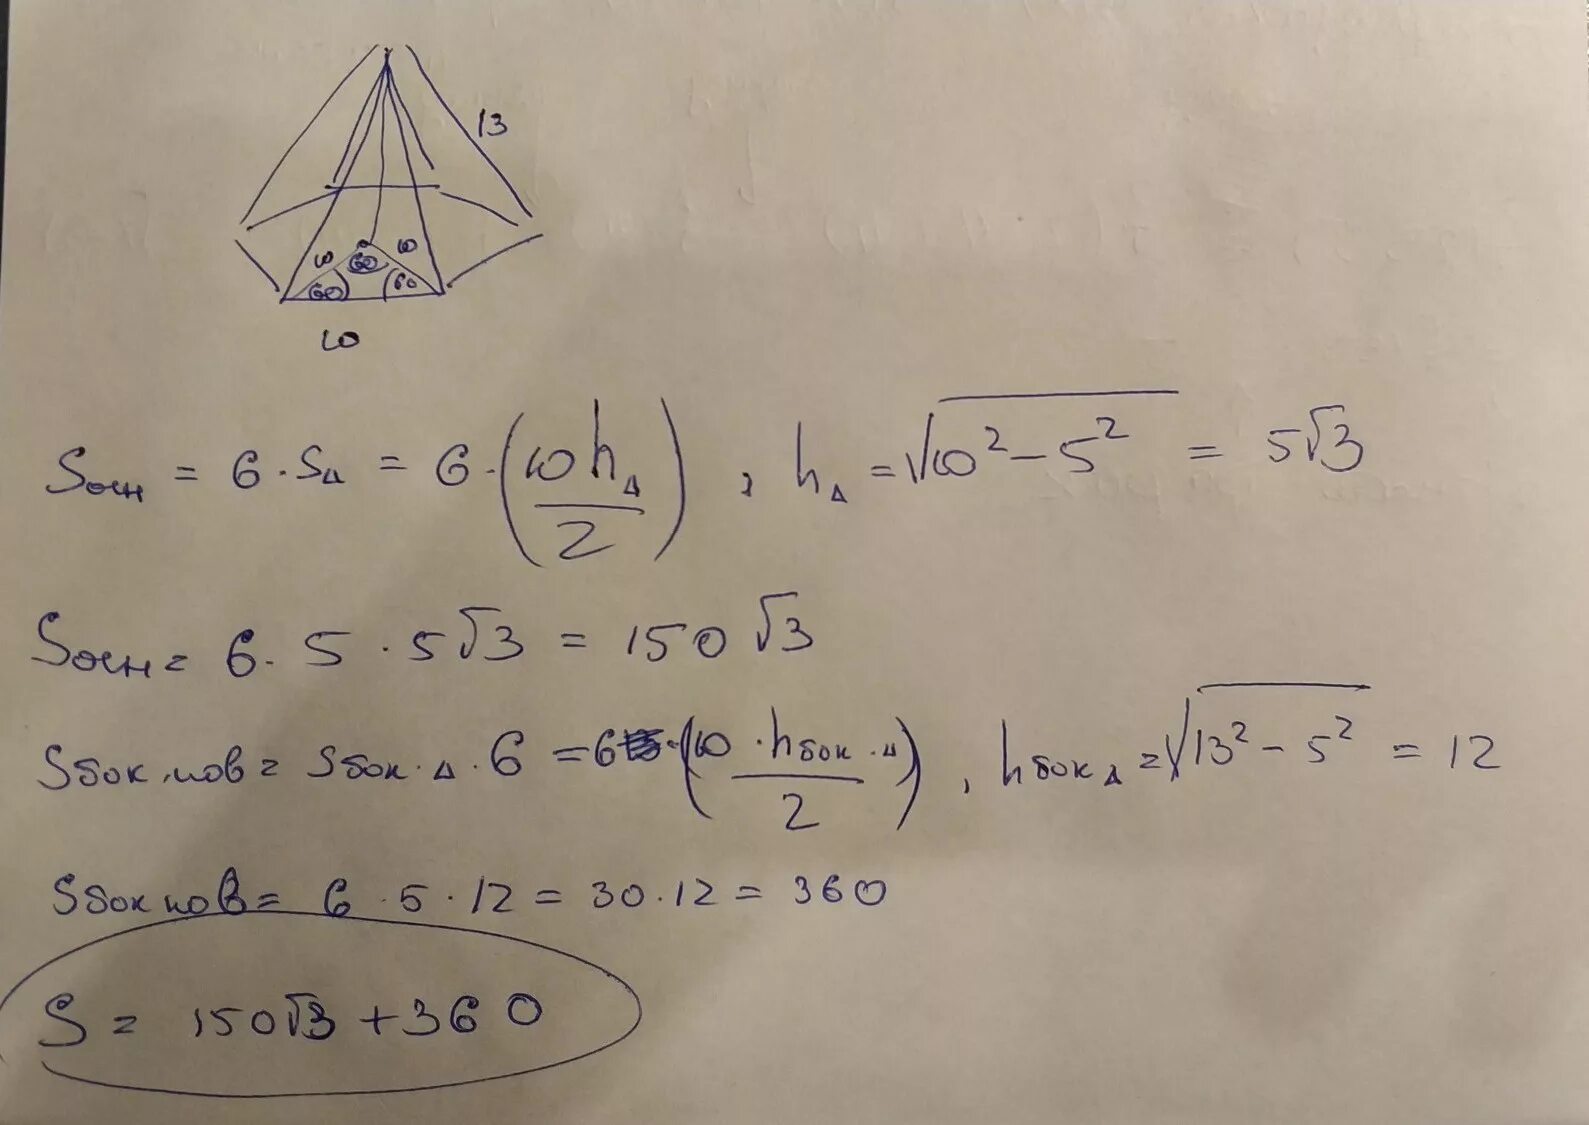 13
10 10
60
60 60
10
Sосн = 6 · SΔ = 6 · (10hΔ / 2) , hΔ = √(10² − 5²) = 5√3
Sосн = 6 · 5 · 5√3 = 150√3
Sбок.пов = Sбок.Δ · 6 = 6 · (10 · hбок.Δ / 2) , hбокΔ = √(13² − 5²) = 12
Sбок пов = 6 · 5 · 12 = 30 · 12 = 360
S = 150√3 + 360